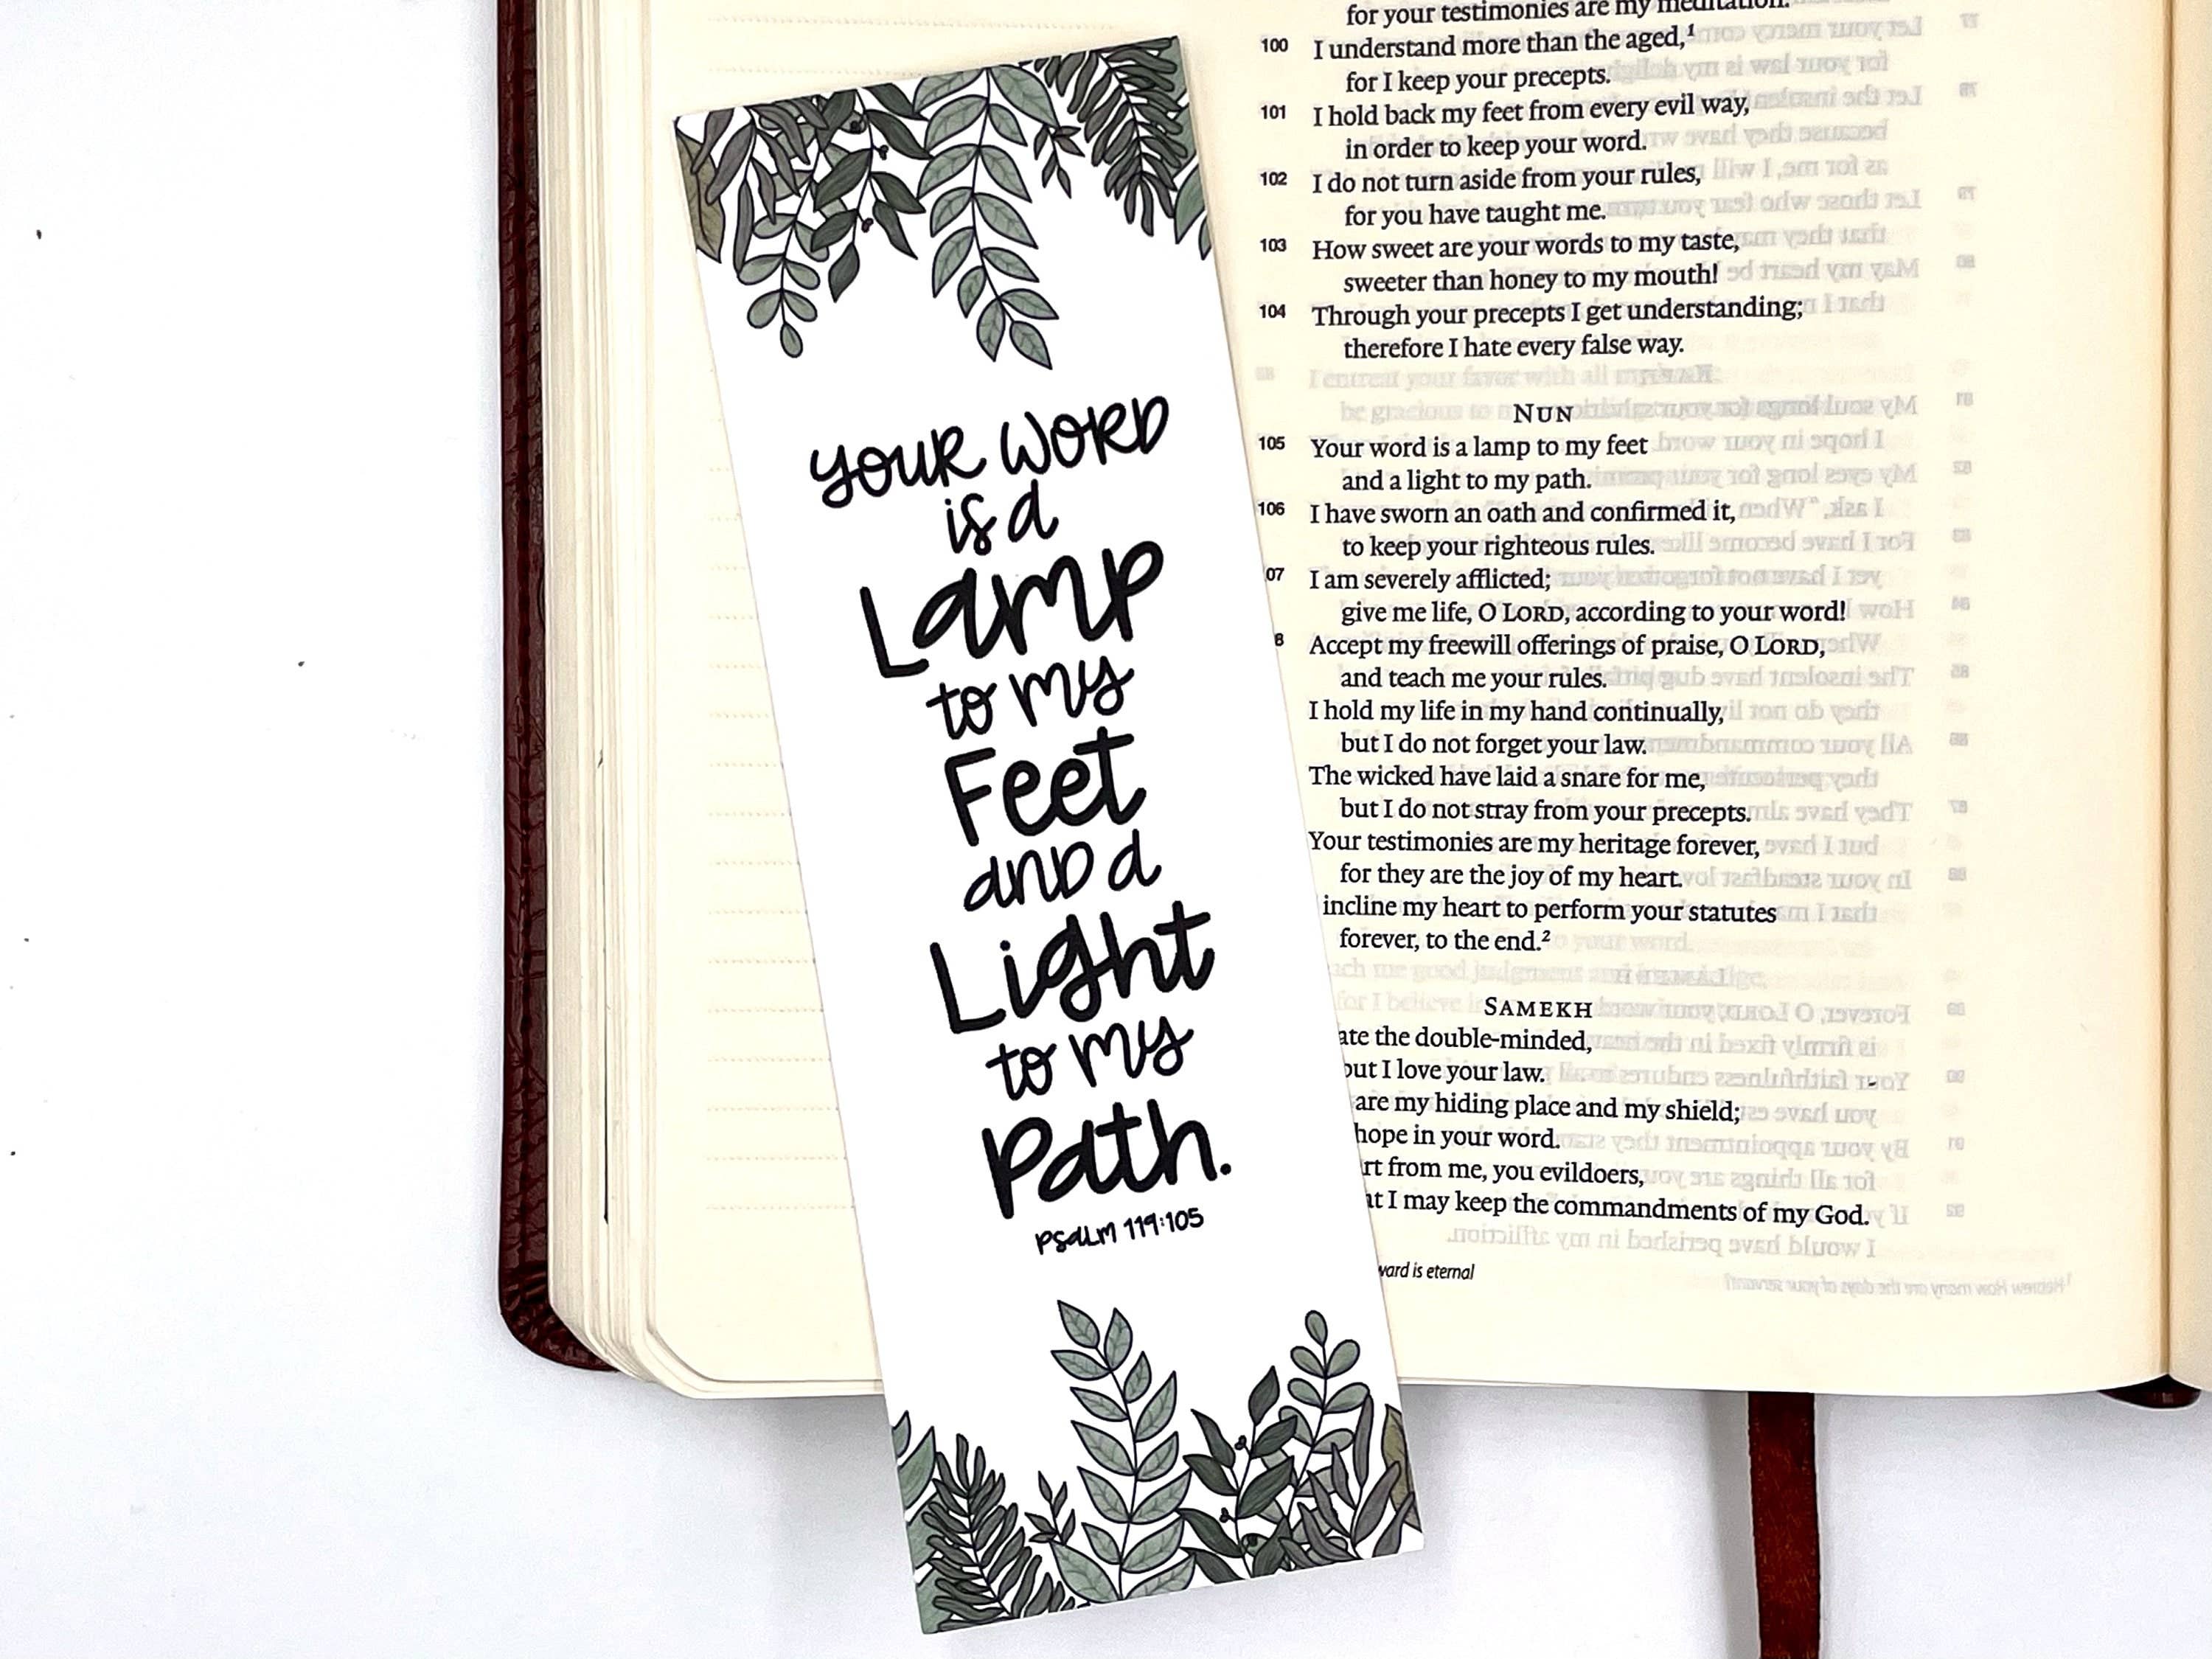 YOUR WORD
is a
Lamp
to my
Feet
and a
Light
to my
Path.
Psalm 119:105
for your testimonies are my meditation.
100 I understand more than the aged,¹
for I keep your precepts.
101 I hold back my feet from every evil way,
in order to keep your word.
102 I do not turn aside from your rules,
for you have taught me.
103 How sweet are your words to my taste,
sweeter than honey to my mouth!
104 Through your precepts I get understanding;
therefore I hate every false way.
NUN
105 Your word is a lamp to my feet
and a light to my path.
106 I have sworn an oath and confirmed it,
to keep your righteous rules.
07 I am severely afflicted;
give me life, O LORD, according to your word!
8 Accept my freewill offerings of praise, O LORD,
and teach me your rules.
I hold my life in my hand continually,
but I do not forget your law.
The wicked have laid a snare for me,
but I do not stray from your precepts.
Your testimonies are my heritage forever,
for they are the joy of my heart.
incline my heart to perform your statutes
forever, to the end.²
SAMEKH
ate the double-minded,
but I love your law.
are my hiding place and my shield;
hope in your word.
rt from me, you evildoers,
at I may keep the commandments of my God.
ward is eternal